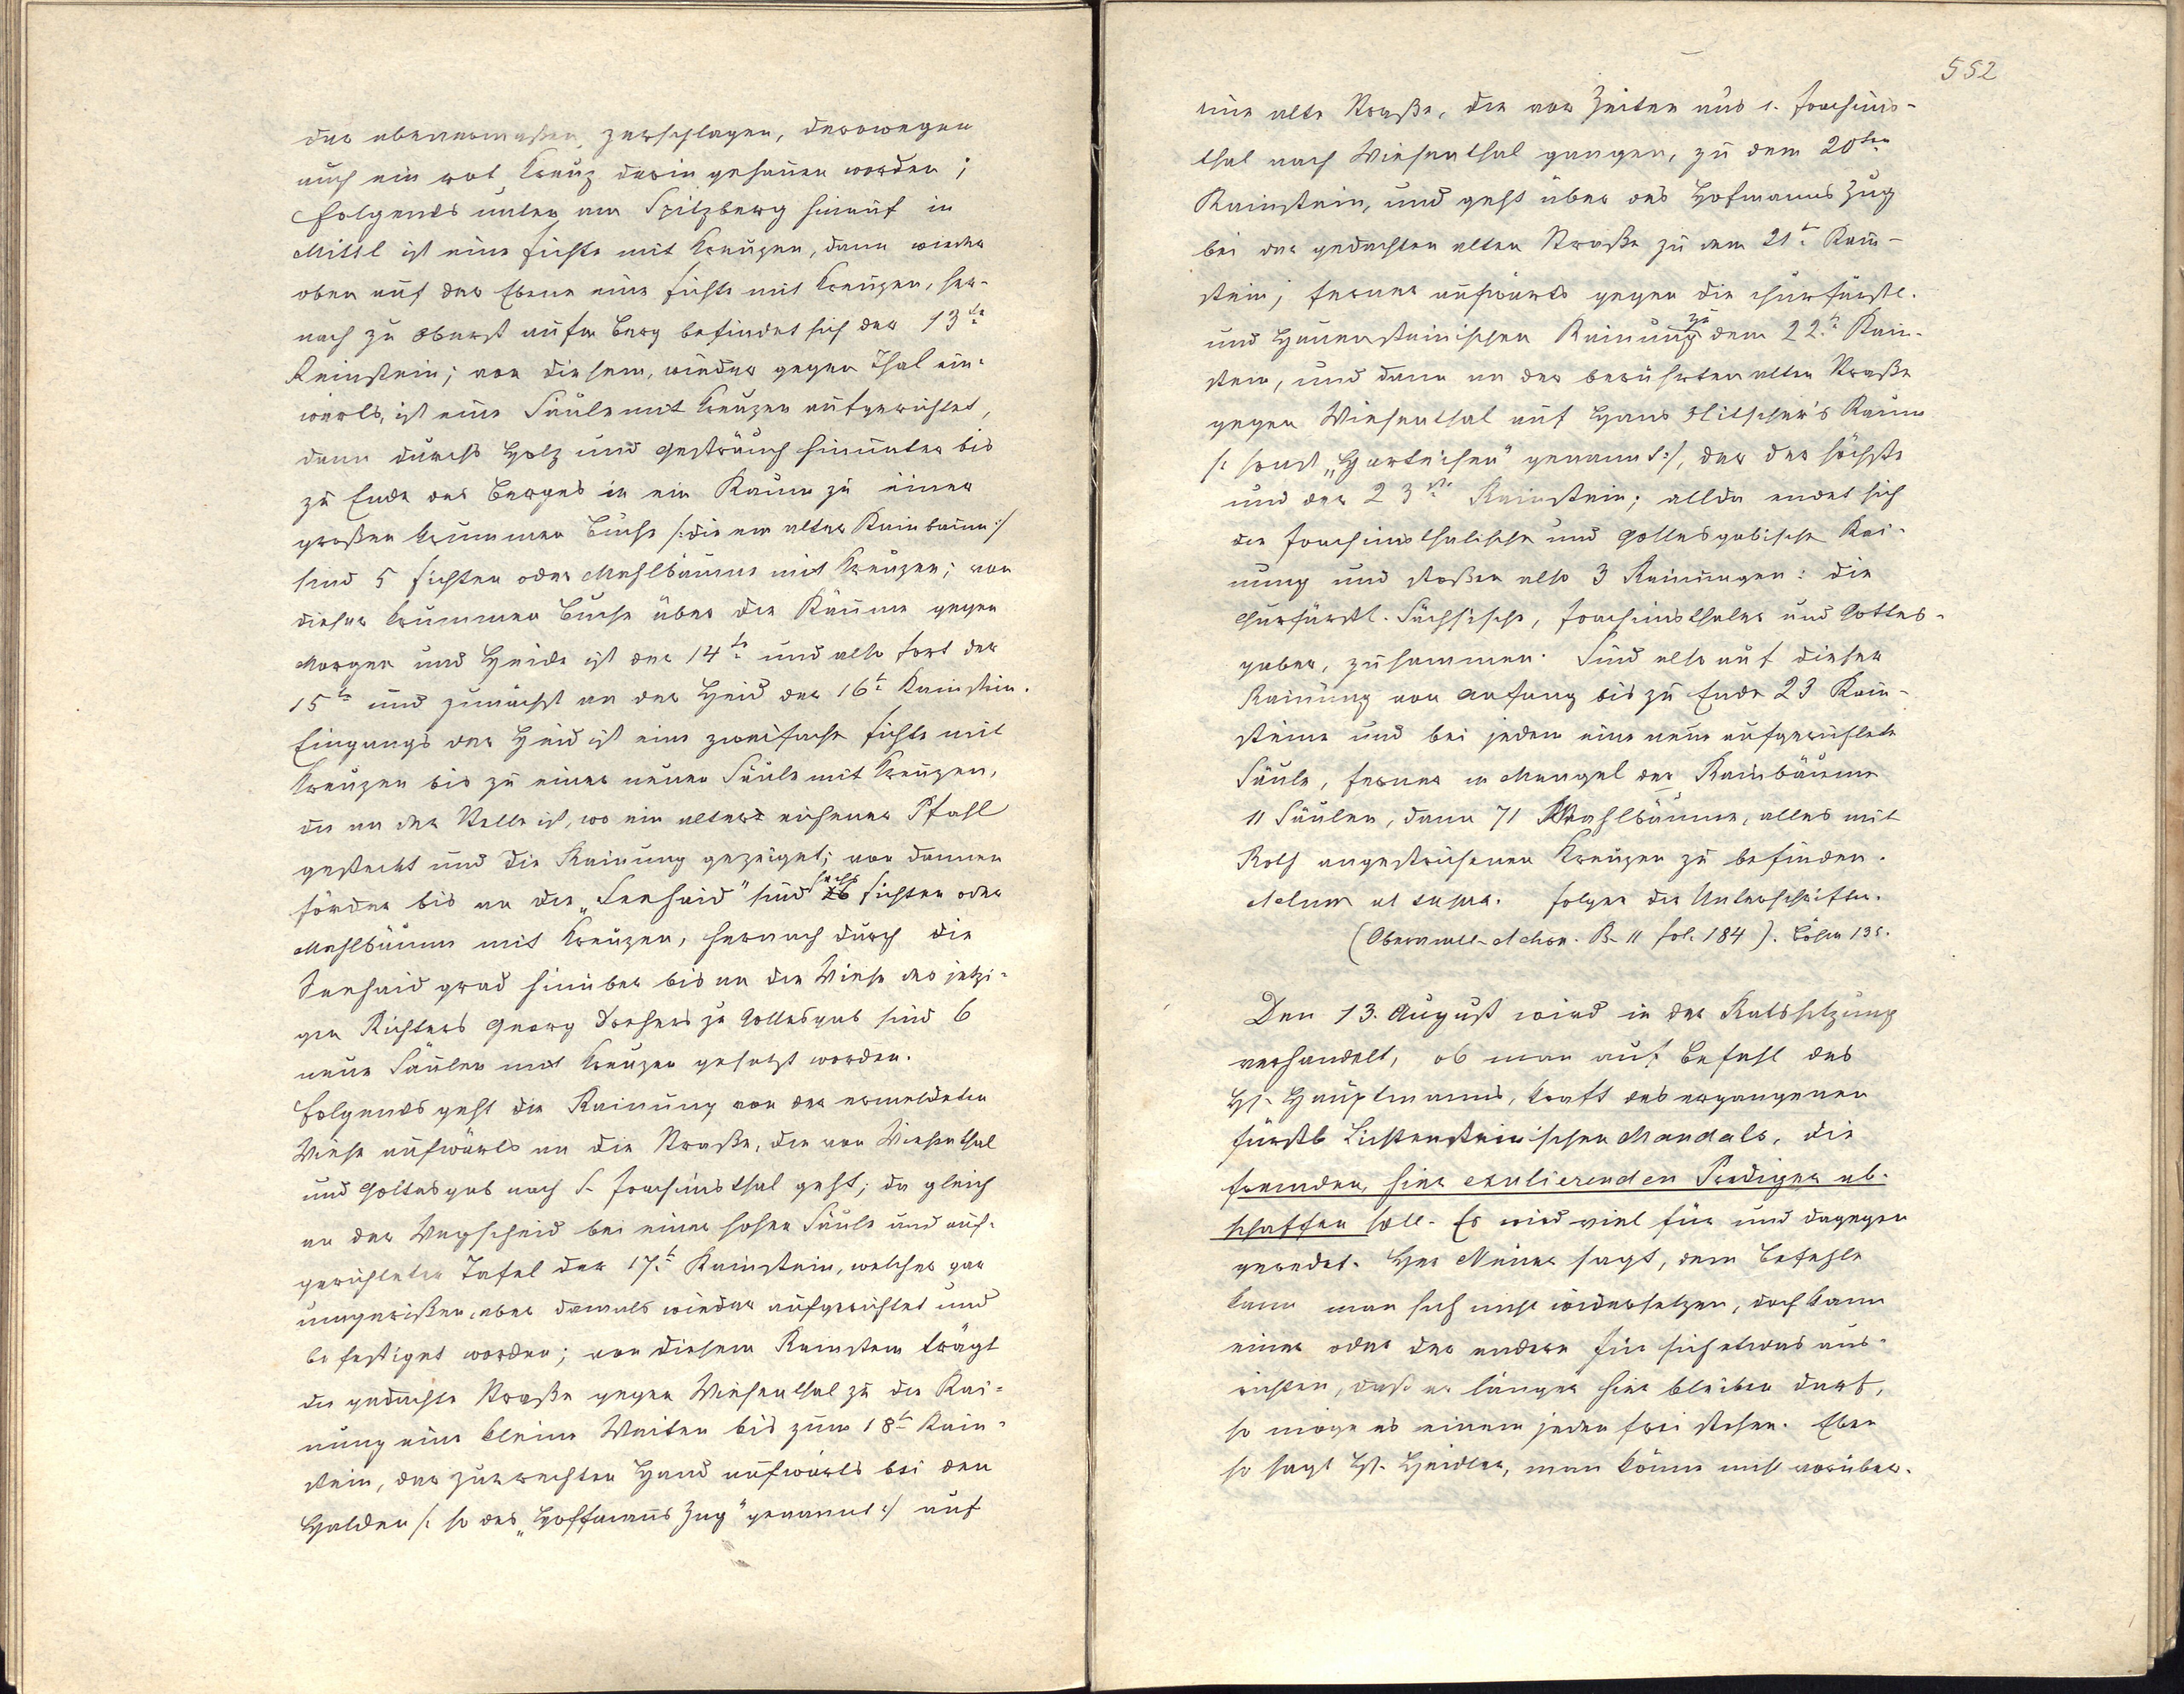 der abenermaßen, zerschlagen, derowegen
auch ein rot Kreuz darin gehauen worden;
Folgends unten am Spitzberg hinauf in
Mittl ist eine Fichte mit Kreuzen, dann wieder
oben auf der Ebene eine Fichte mit Kreuzen, her-
nach zu oberst aufm Berg befindet sich der 13te
Reinstein; von diesem, wieder gegen Thal ein-
wärts, ist eine Säule mit Kreuzen aufgerichtet,
dann durchs Holz und Gesträuch hinunter bis
zu Ende des Berges in ein Raum zu einer
großen krummen Buche /: die ein alter Rainbaum :/
sind 5 Fichten oder Mahlbäume mit Kreuzen; von
dieser krummen Buche über die Räume gegen
Morgen und Heide ist der 14te und also fort der
15te und zunächst an der Heid der 16te Rainstein.
Eingangs der Heid ist eine zweifache Fichte mit
Kreuzen bis zu einer neuen Säule mit Kreuzen,
die an der Stelle ist, wo ein alter eichener Pfahl
gesteckt und die Rainung gezeiget; von dannen
förder bis an die „Seehaid" sind sechs Fichten oder
Mahlbäume mit Kreuzen, hernach durch die
Seehaid grad hinüber bis an die Wiese des jetzi-
gen Richters Georg Drehers zu Gottesgab sind 6
neue Säulen mit Kreuzen gesetzt worden.
Folgends geht die Rainung von der ermeldeten
Wiese aufwärts an die Straße, die von Wiesenthal
und Gottesgab nach S. Joachimsthal geht; da gleich
an der Wegscheid bei einer hohen Säule und auf-
gerichteten Tafel der 17te Rainstein, welcher gar
umgerißen, aber damals wieder aufgerichtet und
befestiget worden; von diesem Rainstein trägt
die gedachte Straße gegen Wiesenthal zu die Rai-
nung eine kleine Weiten bis zum 18te Rain-
stein, der zur rechten Hand aufwärts bei den
Halden /: so des „Hoffmanns Zug" genannt :/ auf
552
eine alte Straße, die vor Zeiten aus s. Joachims-
thal nach Wiesenthal gangen, zu dem 20ten
Rainstein, und geht über des Hofmanns Zug
bei der gedachten alten Straße zu dem 21te Rain-
stein; ferner aufwärts gegen die churfürstl.
und Hauensteinischen Rainung zu dem 22te Rain-
stein, und dann an der berührten alten Straße
gegen Wiesenthal auf Hans Hitscher's Raum
/: sonst „Harteisen" genannt :/, der der höchste
und der 23ste Rainstein; allda endet sich
die Joachimsthalische und Gottesgabische Rai-
nung und stoßen also 3 Rainungen: die
churfürstl. Sächsische, Joachimsthaler und Gottes-
gaber, zusammen. Sind also auf dieser
Rainung von Anfang bis zu Ende 23 Rain-
steine und bei jedem eine neue aufgerichtete
Säule, ferner in Mangel der Rainbäume
11 Säulen, dann 71 Mahlbäume, alles mit
Roth angestrichenen Kreuzen zu befinden.
Actum ut supra. Folgen die Unterschriften.
(Oberamts-Archiv. B. 11 fol. 184).
Den 13. August wird in der Ratssitzung
verhandelt, ob man auf Befehl des
H. Hauptmanns, kraft des ergangenen
fürstl. Lichtensteinischen Mandats, die
fremden, hier exulierenden Prediger ab-
schaffen soll. Es wird viel für und dagegen
geredet. Her Meiner sagt, dem Befehle
kann man sich nicht widersetzen, doch kann
einer oder der andere für sich etwas aus-
richten, daß er länger hier bleiben darf,
so möge es einem jeden frei stehen. Eben
so sagt H. Heidler, man könne nicht vorüber.